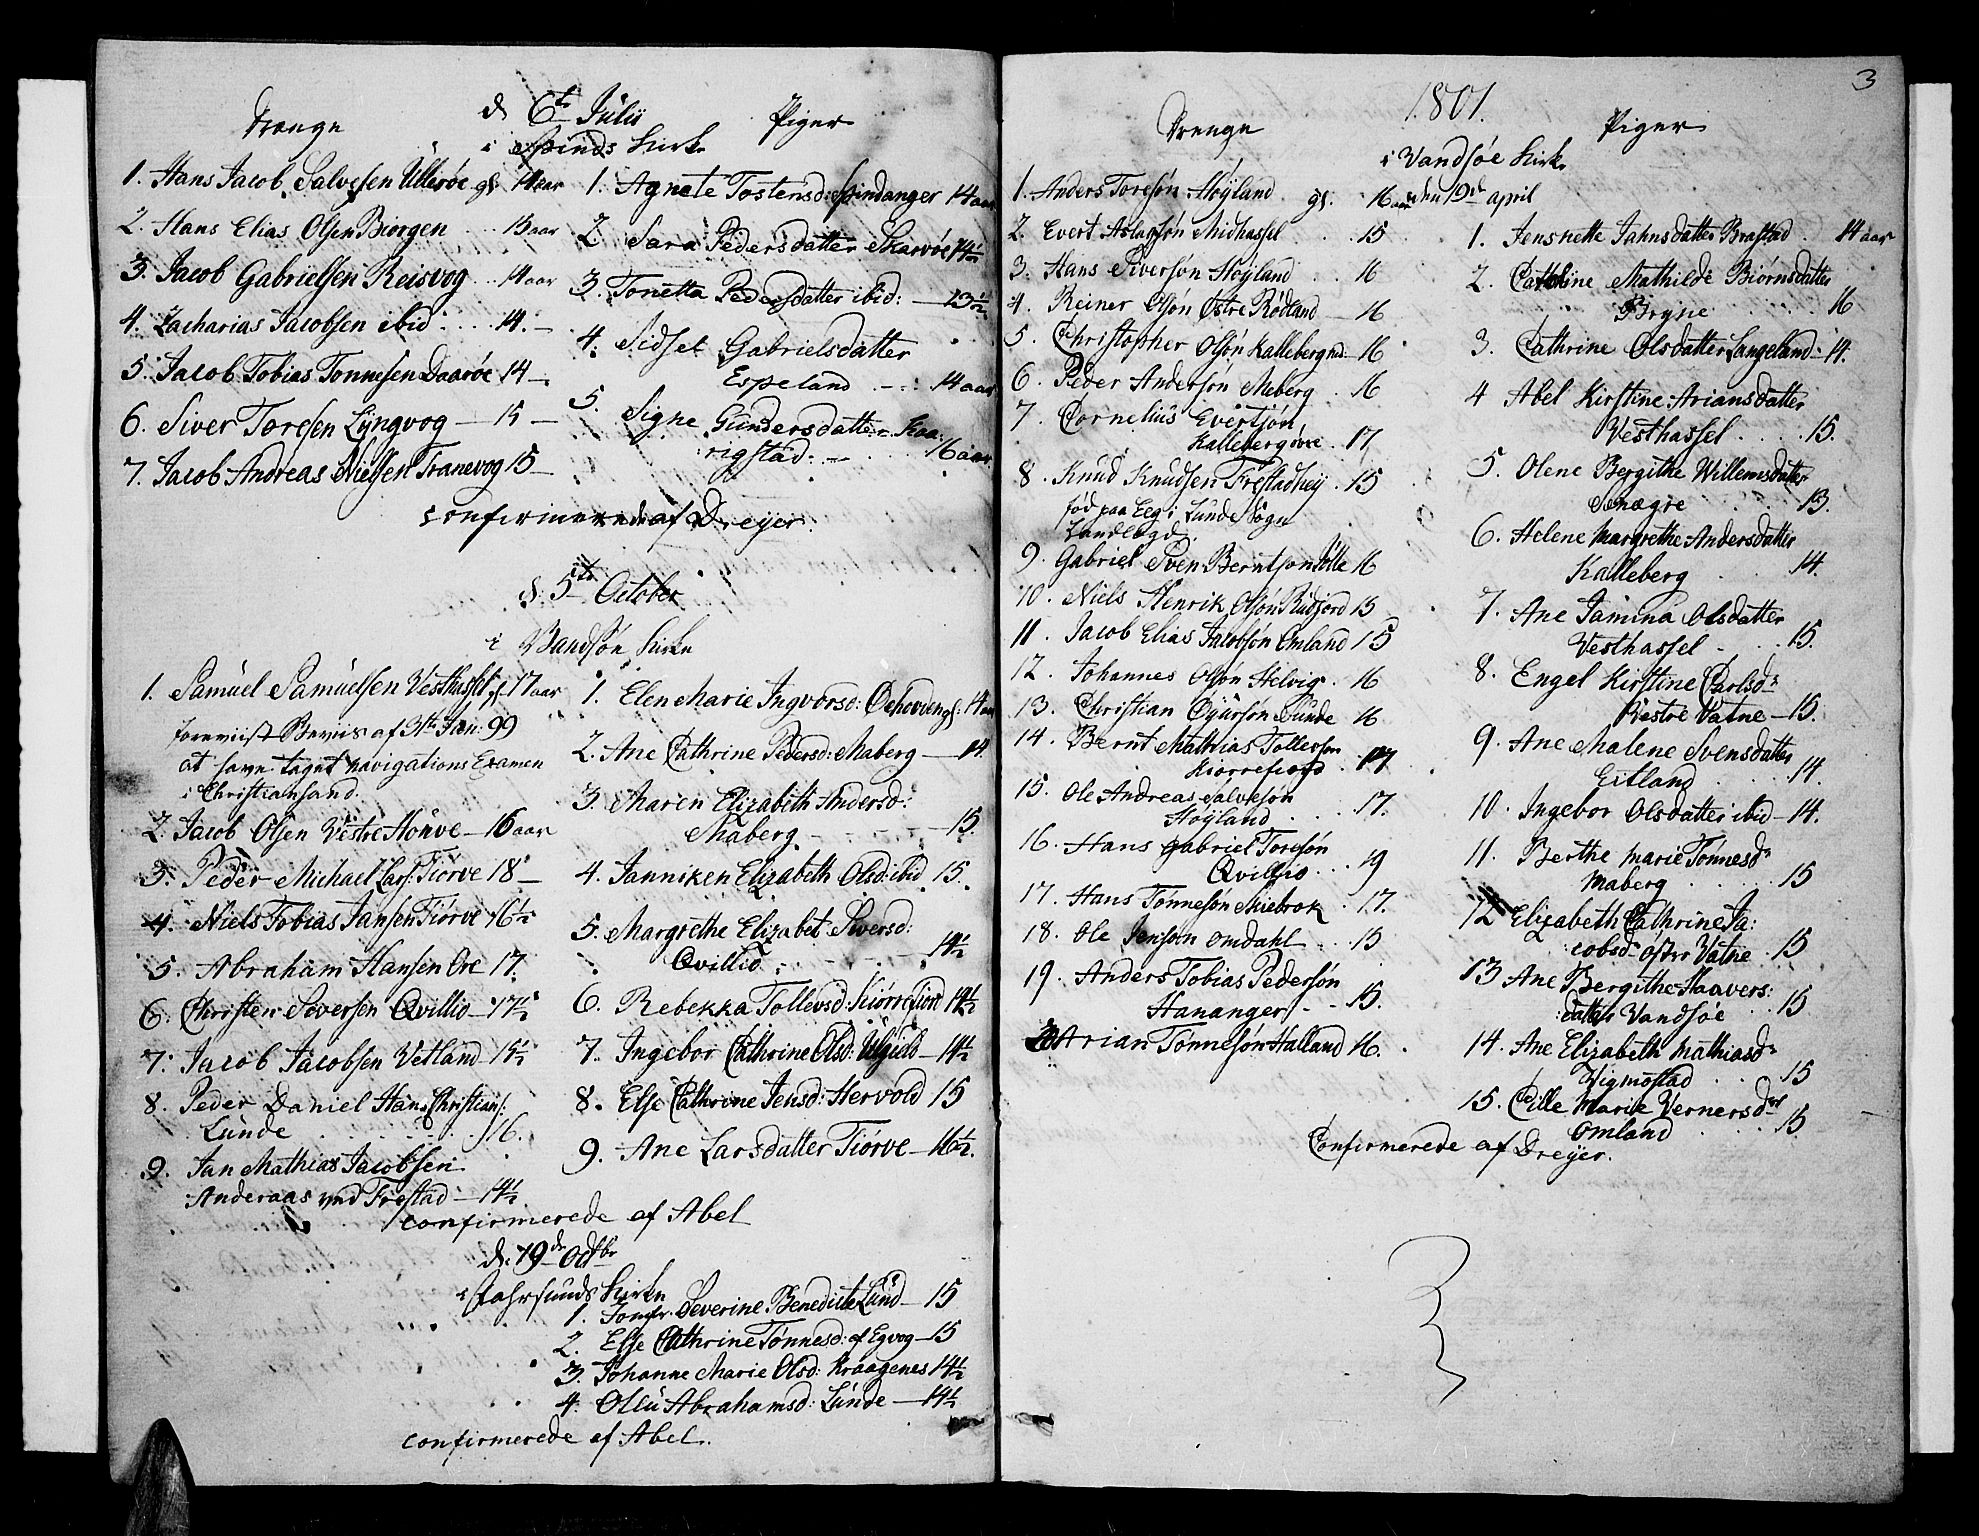 d 6te Julii
Drenge
Piger
i Spinds Kirke
1. Hans Jacob Salvesen Ullerøe gl. 14 aar
2. Hans Elias Olsen Biorgen ... 15 aar
3. Jacob Gabrielsen Reisvog .. 14 aar
4. Zacharias Jacobsen ibid .... 14. -
5. Jacob Tobias Tonnesen Daarøe 14 -
6. Siver Toresen Lÿngvog - 15 -
7. Jacob Andreas Nielsen Tranevog 15 -
1. Agnete Tostensd: Spindanger 14 aar
2. Sara Pedersdatter Skarvøe 14½
3. Tonetta Pedersdatter ibid: - 13½
4. Sidsel Gabrielsdatter
Espeland - - : 14 aar
5. Signe Gundersdatter Kaa:
rigstad: - ... 16 aar
confirmerede af Dreÿer.
d: 5te October
i Vandsøe Kirke
1. Samuel Samuelsen Vesthassel gl. 17 aar
foreviist Beviis af Jan: 99
at have taget navigations Examen
i Christiansand.
2. Jacob Olsen Vestre Honve - 16 aar
3. Peder Michael Lars: Tiørve 18 -
4. Niels Tobias Jansen Tiørve 16½
5. Abraham Hansen Ore 17.
6. Christen Siversen Qvillio - 17½
7. Jacob Jacobsen Vetland - 15½
8. Peder Daniel Hans Christians:
Lunde ....... 16.
9. Jan Mathias Jacobsen
Anderaas ved Frestad - 14½
1. Elen Marie Ingvorsd: Oehovden gl. 14 aar
2. Ane Cathrine Pedersd: Maberg - 14.
3. Maren Elizabeth Andersd:
Maberg - - - - 15.
4. Janniken Elizabeth Olsd: ibid 15.
5. Margrethe Elizabet Siversd:
Qvillio - - - 14½
6. Rebekka Tollevsd: Kiørrefiord 14½
7. Ingebor Cathrine Olsd: Ulgiels - 14½
8. Else Cathrine Jensd: Hervold 15
9. Ane Larsdatter Tiørve - 16½.
confirmerede af Abel
d. 19de Octbr
i Fahrsunds Kirke
1. Jomfr. Severine Benedicte Lund - 15
2. Else Cathrine Tønnesd: af Egvog - 15
3. Johanne Marie Olsd: Kraagenes 14½
4. Ollu Abrahamsd: Lunde - 14½
confirmerede af Abel.
3
1801.
Drenge
Piger
i Vandsøe Kirke
den 19de april
1. Anders Toresøn Høyland . gl. 16 aar
2. Evert Aslagsøn Midhassel . . 15
3. Hans Siversøn Høyland . 16
4. Reiner Olsøn Østre Rødland - 16
5. Christopher Olsøn Kallebergnd. 16
6. Peder Andersøn Meberg . 16
7. Cornelius Evertsøn
Kallebergøvre . 17
8. Knud Knudsen Frestadhey . 15
fød paa Eeg i Lunde Sogn
9. Gabriel Sven Berntsøn Totte 16
10. Niels Henrik Olsøn Rudjord 15
11. Jacob Elias Jacobsøn Omland 15
12. Johannes Olsøn Helvig . 16
13. Christian Ogursøn Sunde 16
14. Bernt Mathias Tollevsen
Kiorrefiord . 17
15. Ole Andreas Salvesøn
Høyland .... 17.
16. Hans gabriel Toresøn
Qvillio ... 19
17. Hans Tønnesøn Miebrok . 17.
18. Ole Jensøn omdahl ... 15
19. Anders Tobias Pedersøn
Hananger - - 15.
20 Arian Tønnesøn Halland 16.
1. Jensnette Jahnsdatter Brastad . 14 aar
2. Cathrine Mathilde Biørnsdatter
Brÿne ..... 16
3. Cathrine Olsdatter Langeland: 14.
4 Abel Kirstine Ariansdatter
Vesthassel ..... 15.
5. Olene Bergithe Willemsdatter
Snægre .... 13.
6. Helene Margrethe Andersdatter
Kalleberg .... 14.
7. Ane Jamina Olsdatter
Vesthassel ... 15.
8. Engel Kirstine Carlsdr
Vestre Vatne - 15.
9. Ane Malene Svensdatter
Eitland .... 14.
10. Ingebor Olsdatter ibid - 14.
11. Berthe Marie Tønnesdr
Maberg .... 15
12 Elizabeth Cathrine Ja:
cobsd- oster Vatne . 15
13 Ane Bergithe Haavers:
datter Vandsøe .. 15
14. Ane Elizabeth Mathiasdr
Vigmostad ... 15
15. Cille Marie Vernersdtr
Omland .... 15
Confirmerede af Dreÿer.